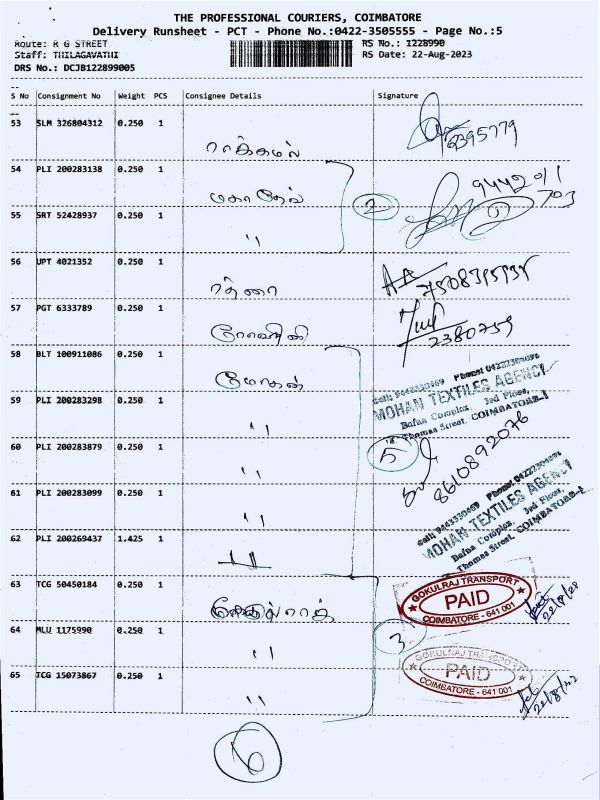 THE PROFESSIONAL COURIERS, COIMBATORE
Delivery Runsheet - PCT - Phone No.:0422-3505555 - Page No.:5
Route: R G STREET RS No.: 1228990
Staff: THILAGAVATHI RS Date: 22-Aug-2023
DRS No.: DCJB122899005
S No Consignment No Weight PCS Consignee Details Signature
53 SLM 326804312 0.250 1
ராக்கமல்
54 PLI 200283138 0.250 1
மகாதேவ் 2
55 SRT 52428937 0.250 1
"
56 UPT 4021352 0.250 1
ரத்னா
57 PGT 6333789 0.250 1
2380759
58 BLT 100911086 0.250 1
மோகன்
MOHAN TEXTILES AGENCY
Bafna Complex, 3rd Floor,
Thomas Street, COIMBATORE-1
59 PLI 200283298 0.250 1
"
5
8610892076
60 PLI 200283879 0.250 1
"
61 PLI 200283099 0.250 1
"
MOHAN TEXTILES AGENCY
Bafna Complex, 3rd Floor,
Thomas Street, COIMBATORE-1
62 PLI 200269437 1.425 1
"
63 TCG 50450184 0.250 1
GOKULRAJ TRANSPORT
PAID
COIMBATORE - 641 001
22/8/23
64 MLU 1175990 0.250 1
" 3
GOKULRAJ TRANSPORT
PAID
COIMBATORE - 641 001
65 TCG 15073867 0.250 1
"
6